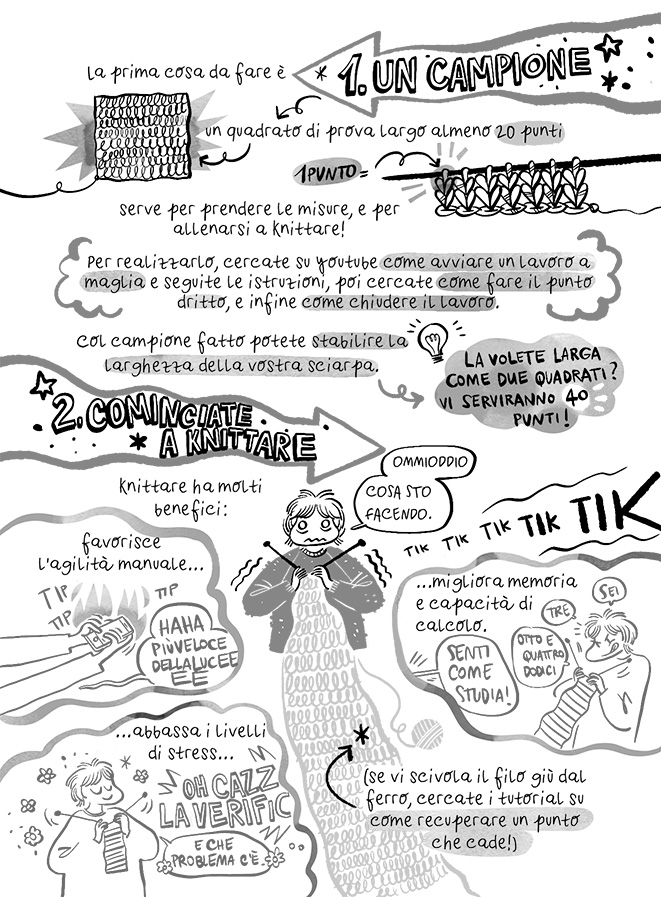 la prima cosa da fare è
* 1. UN CAMPIONE
un quadrato di prova largo almeno 20 punti
1 PUNTO =
serve per prendere le misure, e per
allenarsi a knittare!
Per realizzarlo, cercate su youtube come avviare un lavoro a
maglia e seguite le istruzioni, poi cercate come fare il punto
dritto, e infine come chiudere il lavoro.
Col campione fatto potete stabilire la
larghezza della vostra sciarpa.
LA VOLETE LARGA
COME DUE QUADRATI?
VI SERVIRANNO 40
PUNTI!
2. COMINCIATE
* A KNITTARE
OMMIODDIO
COSA STO
FACENDO.
knittare ha molti
benefici:
TIK TIK TIK TIK TIK
favorisce
l'agilità manuale...
TIP
TIP
TIP
TIP
HAHA
PIÙ VELOCE
DELLA LUCEE
EE
...migliora memoria
e capacità di
calcolo.
SEI
TRE
OTTO E
QUATTRO
DODICI
SENTI
COME
STUDIA!
...abbassa i livelli
di stress...
OH CAZZ
LA VERIFIC
E CHE
PROBLEMA C'È.
*
(se vi scivola il filo giù dal
ferro, cercate i tutorial su
come recuperare un punto
che cade!)